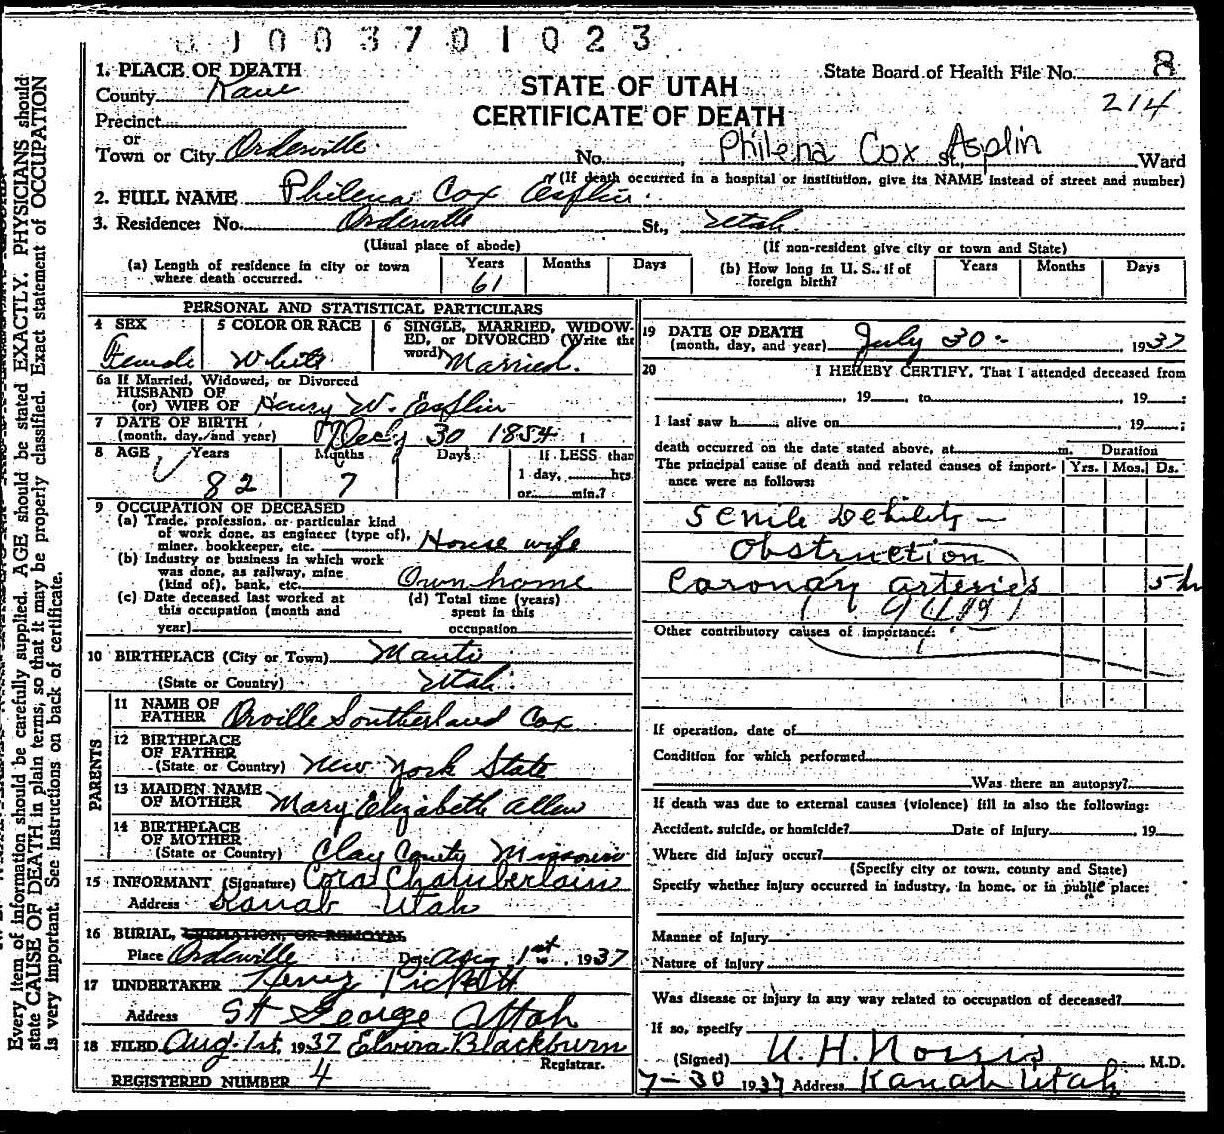 0 0 3 7 0 1 0 2 3
1. PLACE OF DEATH
County Kane
Precinct
or
Town or City Orderville.
STATE OF UTAH
CERTIFICATE OF DEATH
State Board of Health File No. 8
214
No. St., Ward
Philena Cox Asplin
(If death occurred in a hospital or institution, give its NAME instead of street and number)
2. FULL NAME Philena Cox Esplin.
3. Residence: No. Orderville St., Utah.
(Usual place of abode) (If non-resident give city or town and State)
(a) Length of residence in city or town where death occurred. Years 61 Months Days
(b) How long in U. S., if of foreign birth? Years Months Days
PERSONAL AND STATISTICAL PARTICULARS
4 SEX Female
5 COLOR OR RACE White
6 SINGLE, MARRIED, WIDOWED, or DIVORCED (Write the word) Married.
6a If Married, Widowed, or Divorced
HUSBAND OF
(or) WIFE OF Henry W. Esplin
7 DATE OF BIRTH
(month, day, and year) 30 1854
8 AGE Years 82 Months 7 Days If LESS than
1 day, hrs.
or min.?
9 OCCUPATION OF DECEASED
(a) Trade, profession, or particular kind
of work done, as engineer (type of),
miner, bookkeeper, etc. House wife
(b) Industry or business in which work
was done, as railway, mine
(kind of), bank, etc. Own home
(c) Date deceased last worked at
this occupation (month and
year)
(d) Total time (years)
spent in this
occupation
10 BIRTHPLACE (City or Town) Manti
(State or Country) Utah.
PARENTS
11 NAME OF
FATHER Orville Southerland Cox
12 BIRTHPLACE
OF FATHER
(State or Country) New York State
13 MAIDEN NAME
OF MOTHER Mary Elizabeth Allen
14 BIRTHPLACE
OF MOTHER
(State or Country) Clay County Missouri
15 INFORMANT (Signature) Cora Chamberlain
Address Kanab Utah
16 BURIAL, CREMATION, OR REMOVAL
Place Orderville Date Aug 1st, 1937
17 UNDERTAKER Henry Pickett
Address St George Utah
18 FILED Aug. 1st, 1937 Elvira Blackburn
Registrar.
REGISTERED NUMBER 4
19 DATE OF DEATH
(month, day, and year) July 30- 1937
20 I HEREBY CERTIFY, That I attended deceased from
, 19 , to , 19 ;
I last saw h alive on , 19 ;
death occurred on the date stated above, at m.
The principal cause of death and related causes of importance were as follows:
Duration
Yrs. Mos. Ds.
Senile Debility -
Obstruction
Coronary arteries 5 hr
Other contributory causes of importance:
If operation, date of
Condition for which performed
Was there an autopsy?
If death was due to external causes (violence) fill in also the following:
Accident, suicide, or homicide? Date of injury , 19
Where did injury occur?
(Specify city or town, county and State)
Specify whether injury occurred in industry, in home, or in public place:
Manner of injury
Nature of injury
Was disease or injury in any way related to occupation of deceased?
If so, specify
(Signed) U. H. Norris M.D.
7-30 1937 Address Kanab Utah
Every item of information should be carefully supplied. AGE should be stated EXACTLY. PHYSICIANS should
state CAUSE OF DEATH in plain terms, so that it may be properly classified. Exact statement of OCCUPATION
is very important. See instructions on back of certificate.